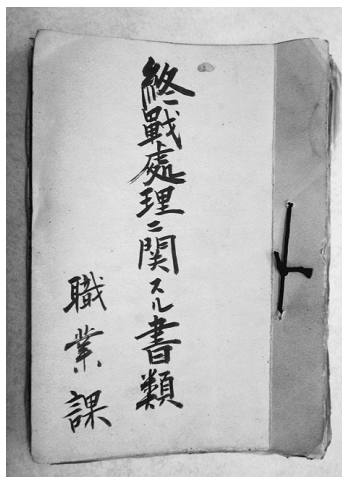 終戰處理ニ関スル書類
職業課